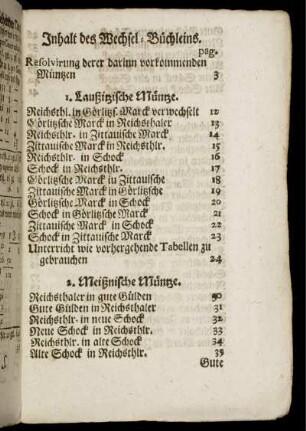 Inhalt des Wechsel-Büchleins.
pag.
Resolvirung derer darinn vorkommenden
Müntzen 3
1. Laußitzische Müntze.
Reichsthl. in Görlitz. Marck verwechselt 12
Görlitzsche Marck in Reichsthaler 13
Reichsthlr. in Zittauische Marck 14
Zittauische Marck in Reichsthlr. 15
Reichsthlr. in Schock 16
Schock in Reichsthlr. 17
Görlitzsche Marck in Zittauische 18
Zittauische Marck in Görlitzsche 19
Görlitzsche Marck in Schock 20
Schock in Görlitzsche Marck 21
Zittauische Marck in Schock 22
Schock in Zittauische Marck 23
Unterricht wie vorhergehende Tabellen zu
gebrauchen 24
2. Meißnische Müntze.
Reichsthaler in gute Gülden 30
Gute Gülden in Reichsthaler 31
Reichsthlr. in neue Schock 32
Neue Schock in Reichsthlr. 33
Reichsthlr. in alte Schock 34
Alte Schock in Reichsthlr. 35
Gute